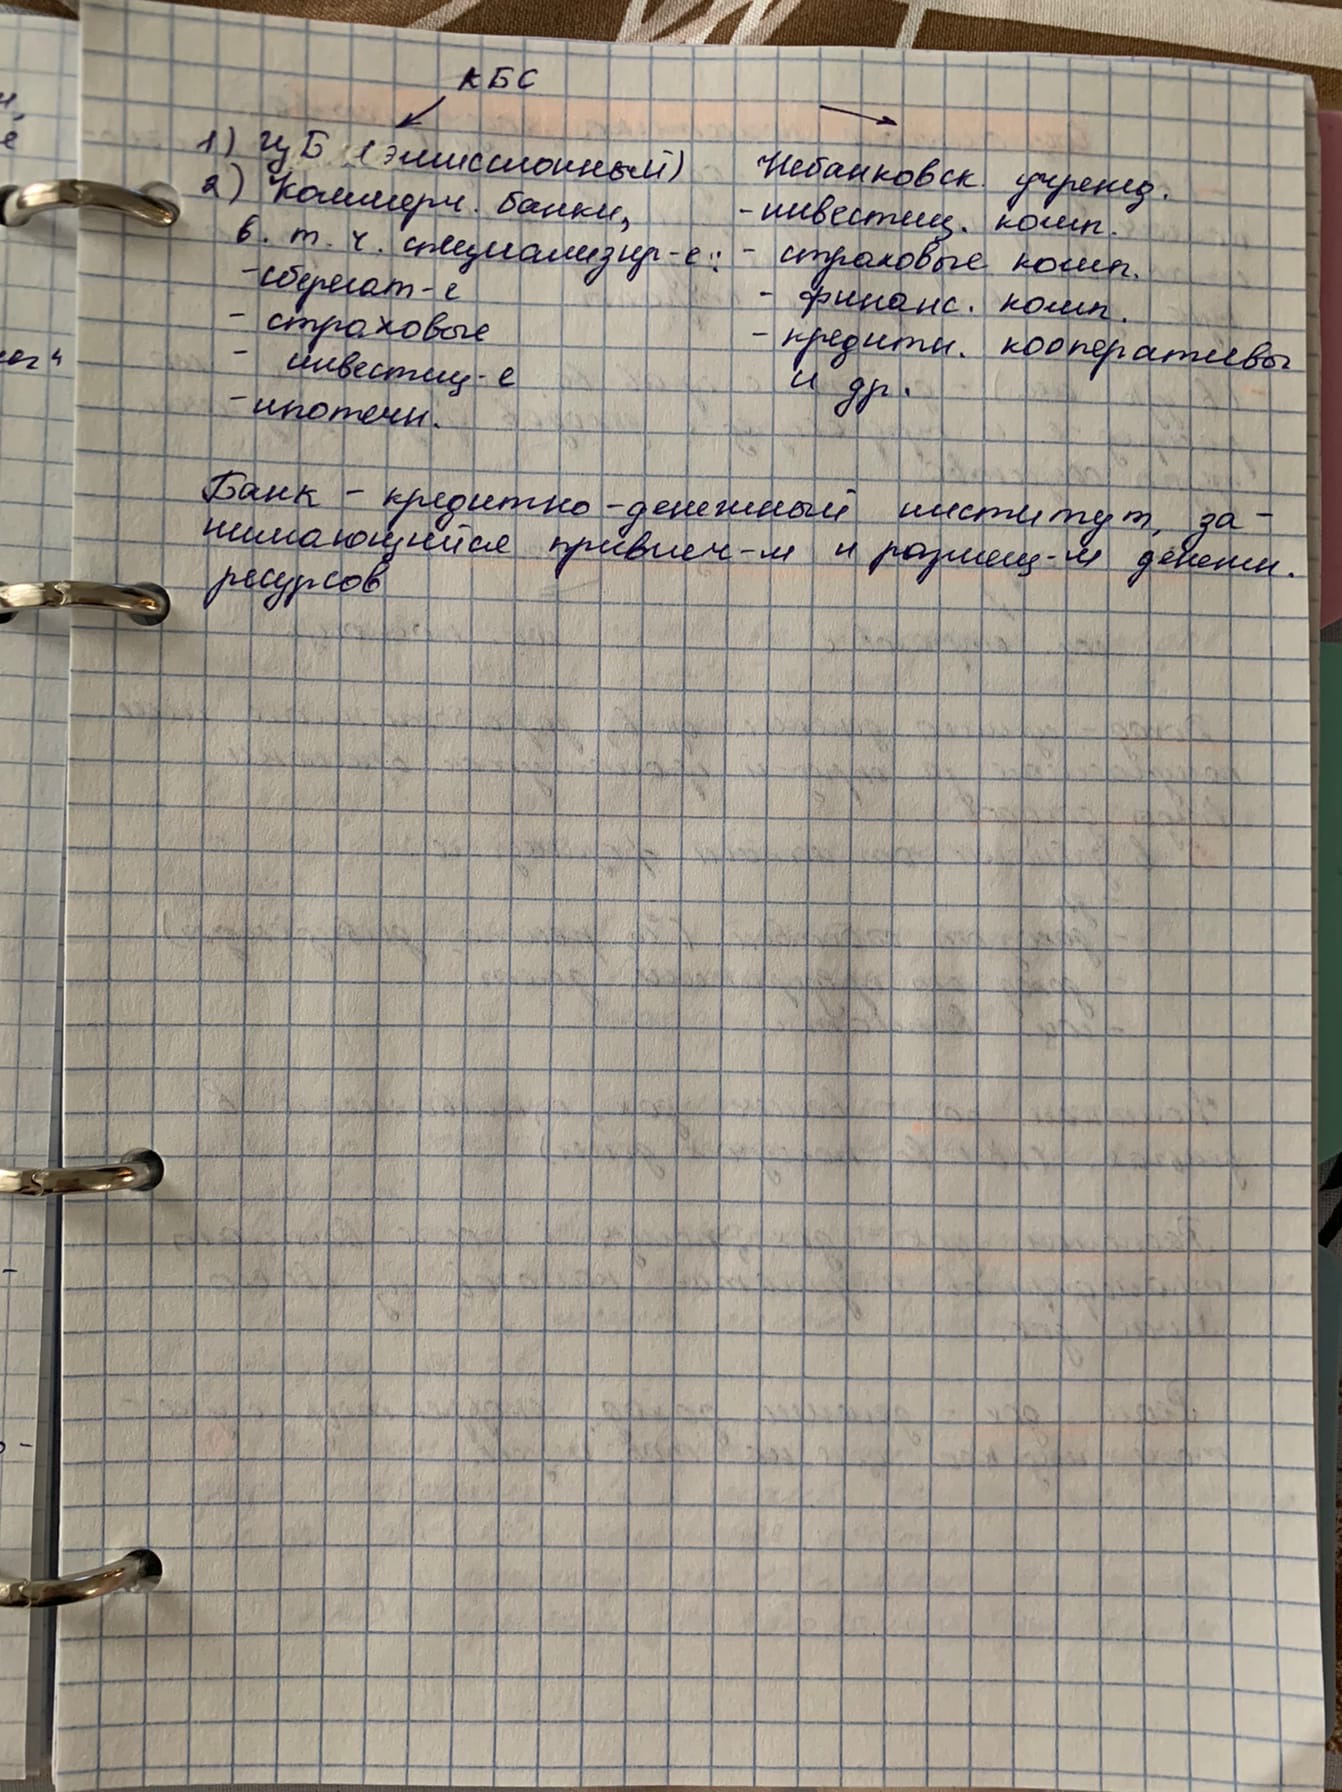 КБС
1) ЦБ (эмиссионный)
2) Коммерч. банки,
в. т. ч. специализир-е:
- сберегат-е
- страховые
- инвестиц-е
- ипотечн.
Небанковск. учрежд.
- инвестиц. комп.
- страховые комп.
- финанс. комп.
- кредитн. кооперативы
и др.
Банк - кредитно-денежный институт, за-
нимающийся привлеч-м и размещ-м денежн.
ресурсов